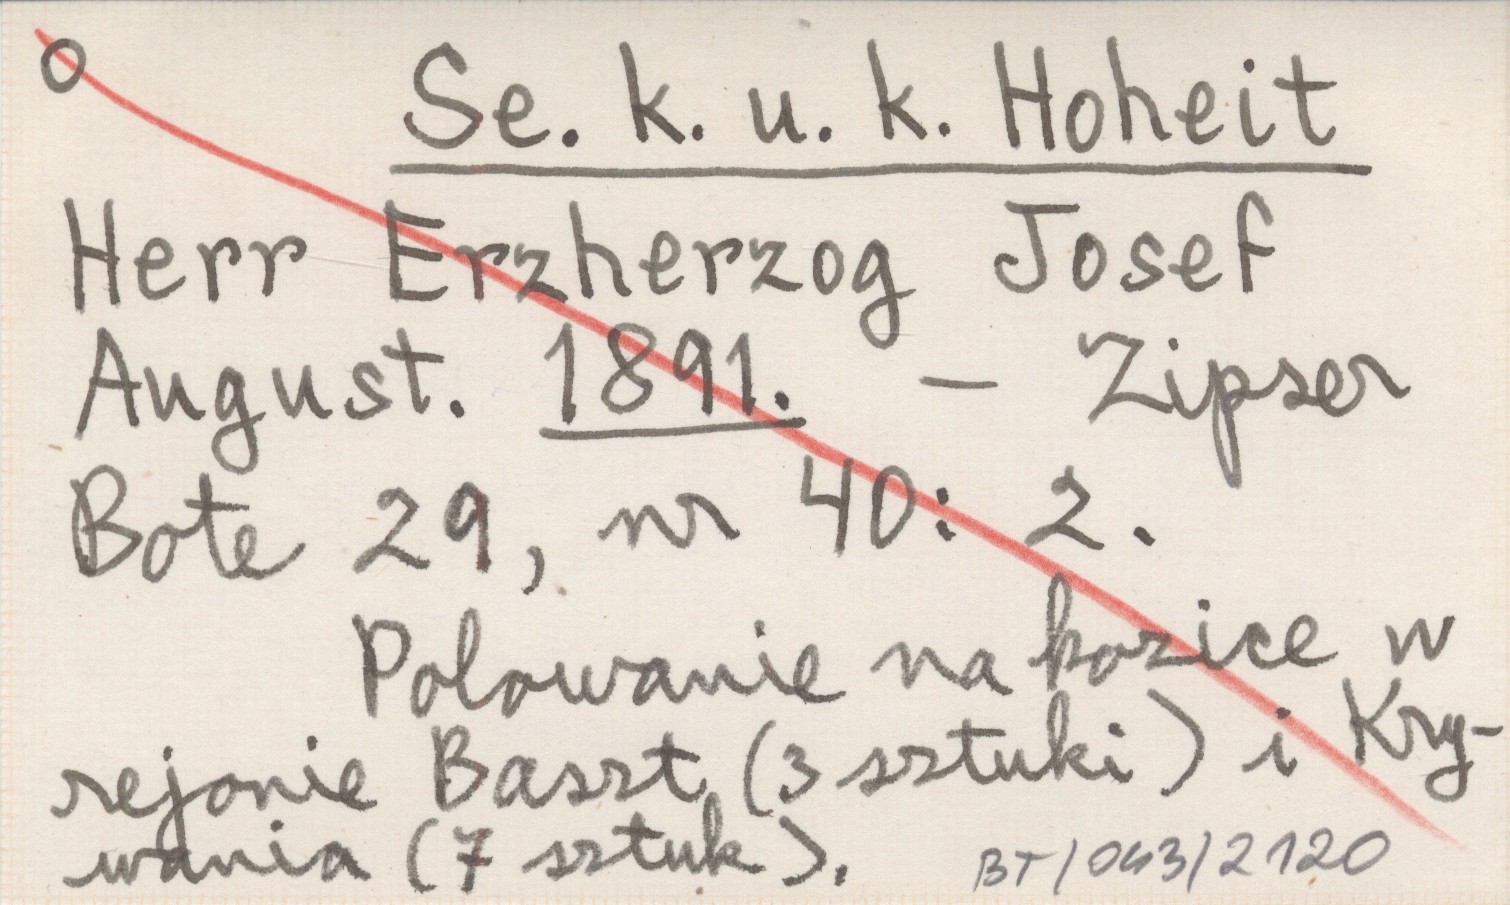 o Se. k. u. k. Hoheit
Herr Erzherzog Josef
August. 1891. – Zipser
Bote 29, nr 40: 2.
Polowanie na kozice w
rejonie Baszt (3 sztuki) i Kry-
wania (7 sztuk).
BT/043/2120